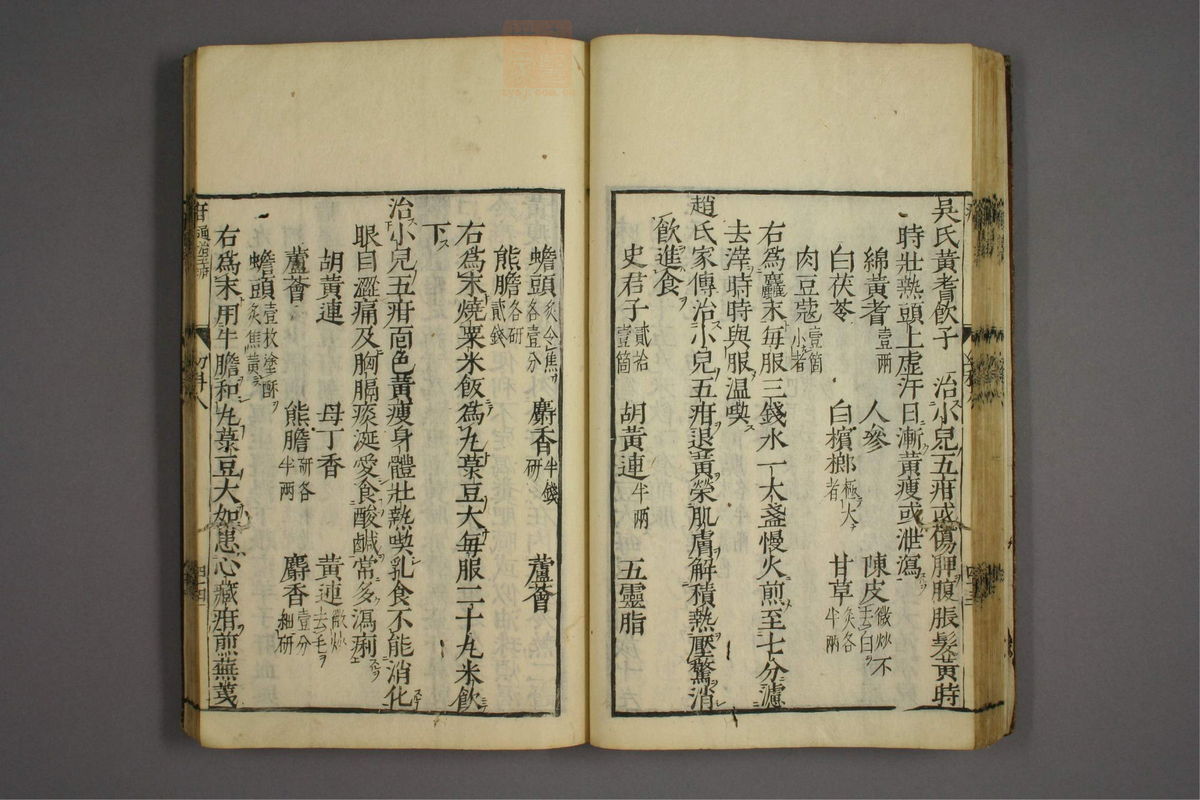 吳氏黃耆飲子　治小兒五疳或傷脾腹脹髮黃時
時壯熱頭上虛汗日漸黃瘦或泄瀉
綿黃耆壹兩　人參　陳皮微炒不去白
白茯苓　白檳榔極大者　甘草炙各半兩
肉豆蔻壹箇小者
右為麤末每服三錢水一大盞慢火煎至七分濾
去滓時時與服溫喫
趙氏家傳治小兒五疳退黃榮肌膚解積熱壓驚消
飲進食
史君子貳拾壹箇　胡黃連半兩　五靈脂
蟾頭炙令焦各壹分　麝香半錢研　蘆薈
熊膽各研貳錢
右為末燒粟米飯為丸菉豆大每服二十丸米飲
下
治小兒五疳面色黃瘦身體壯熱喫乳食不能消化
眼目澀痛及胸膈痰涎愛食酸鹹常多瀉痢
胡黃連　母丁香　黃連微炒去毛
蘆薈　熊膽研各半兩　麝香壹分細研
蟾頭壹枚塗酥炙焦黃
右為末用牛膽和丸菉豆大如患心藏疳煎蕪荑
疳通治五疳
四四